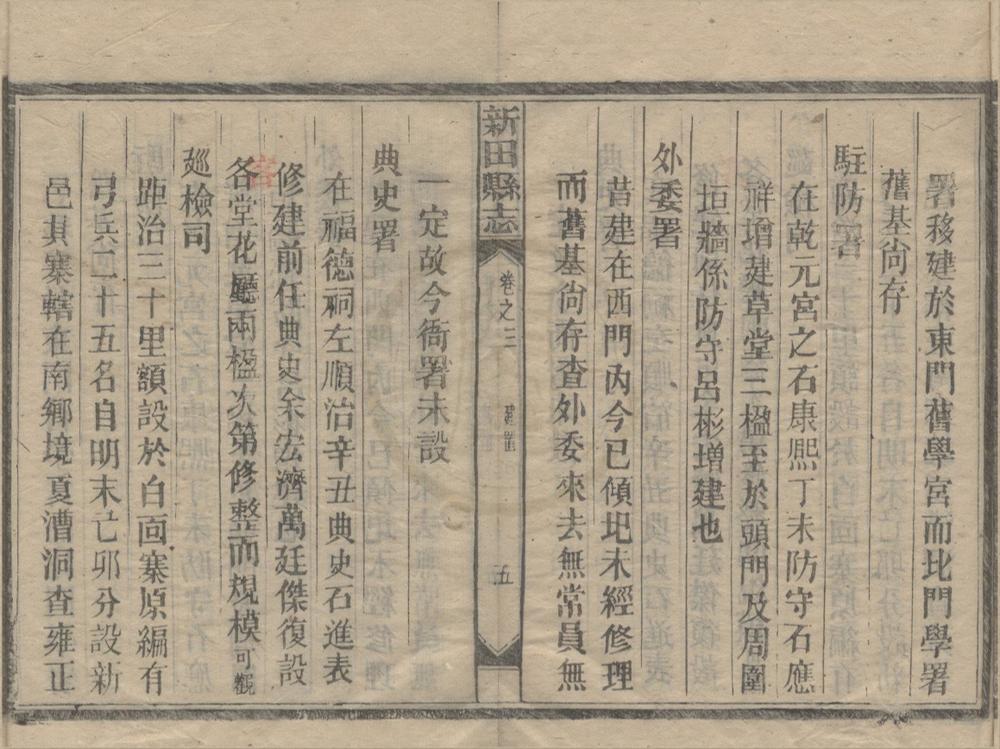 署移建於東門舊學宮而北門學署
舊基尙存
駐防署
在乾元宮之石康熙丁未防守石應
祥增建草堂三楹至於頭門及周圍
垣牆係防守呂彬增建也
外委署
昔建在西門內今已傾圯未經修理
而舊基尙存查外委來去無常員無
新田縣志
卷之三
建置
五
一定故今衙署未設
典史署
在福德祠左順治辛丑典史石進表
修建前任典史余宏濟萬廷傑復設
各堂花廳兩楹次第修整而規模可觀
廵檢司
距治三十里額設於白面寨原編有
弓兵二十五名自明末己卯分設新
邑其寨轄在南鄉境夏漕洞查雍正